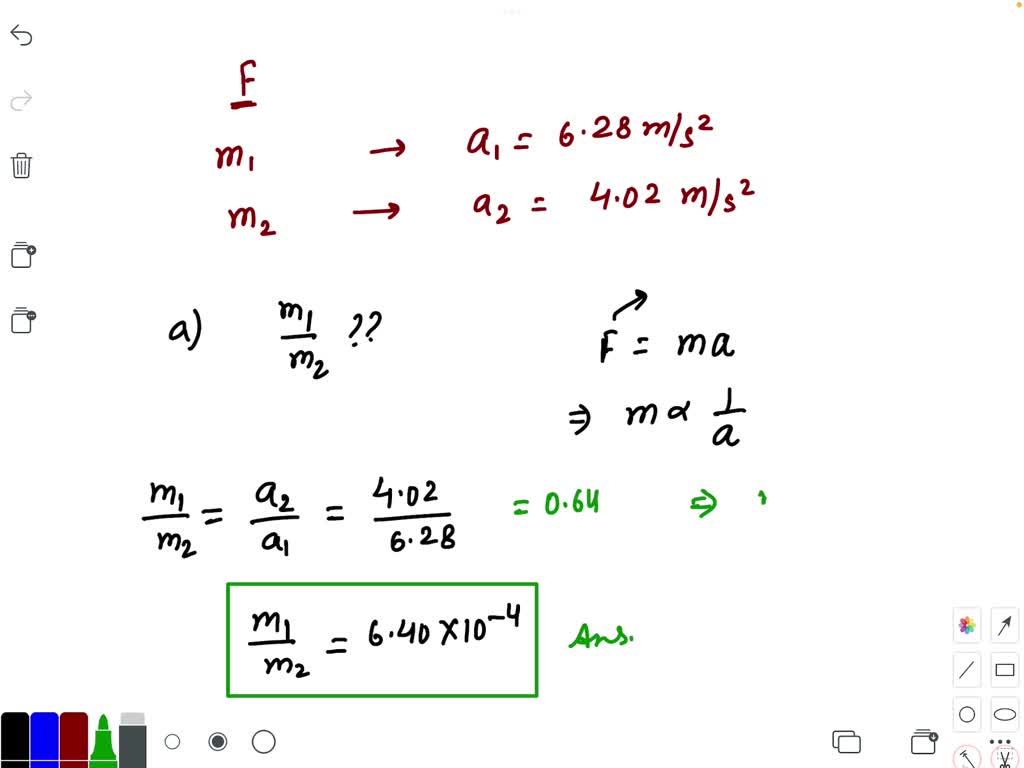 F
m₁ → a₁ = 6.28 m/s²
m₂ → a₂ = 4.02 m/s²
a) m₁/m₂ ??
F = ma
⇒ m ∝ 1/a
m₁/m₂ = a₂/a₁ = 4.02/6.28 = 0.64 ⇒
m₁/m₂ = 6.40 × 10⁻⁴ Ans.